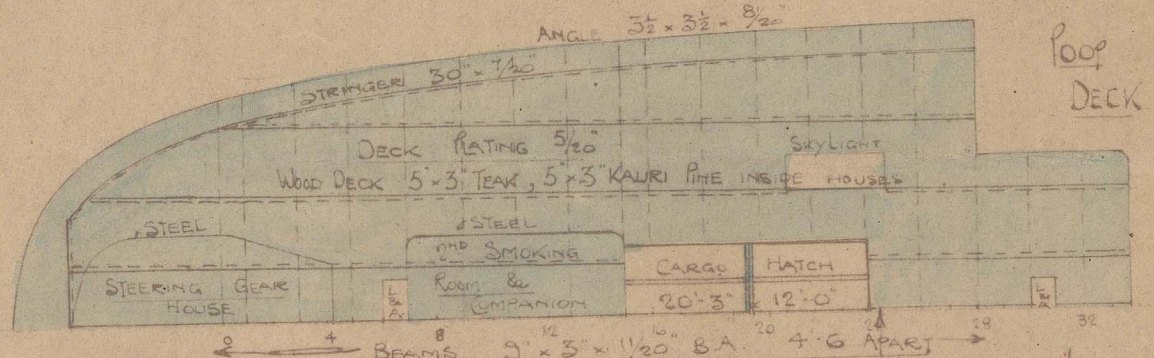 ANGLE 3½ × 3½ × 8/20"
STRINGER 30" × 7/20"
POOP
DECK
DECK PLATING 5/20"
SKYLIGHT
WOOD DECK 5" × 3" TEAK, 5" × 3" KAURI PINE INSIDE HOUSES
STEEL
STEEL
2ND SMOKING
ROOM &
COMPANION
STEERING GEAR
HOUSE
L&A
CARGO HATCH
20'-3" × 12'-0"
L&A
0 4 8 12 16 20 24 28 32
BEAMS 9" × 3" × 11/20" B.A. 4'-6 APART